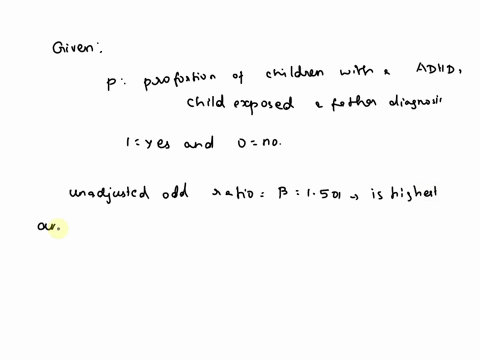 Given:
p: proportion of children with a ADHD,
child exposed a father diagnosis
1 = yes and 0 = no.
unadjusted odd ratio = β = 1.501 → is highest
our.